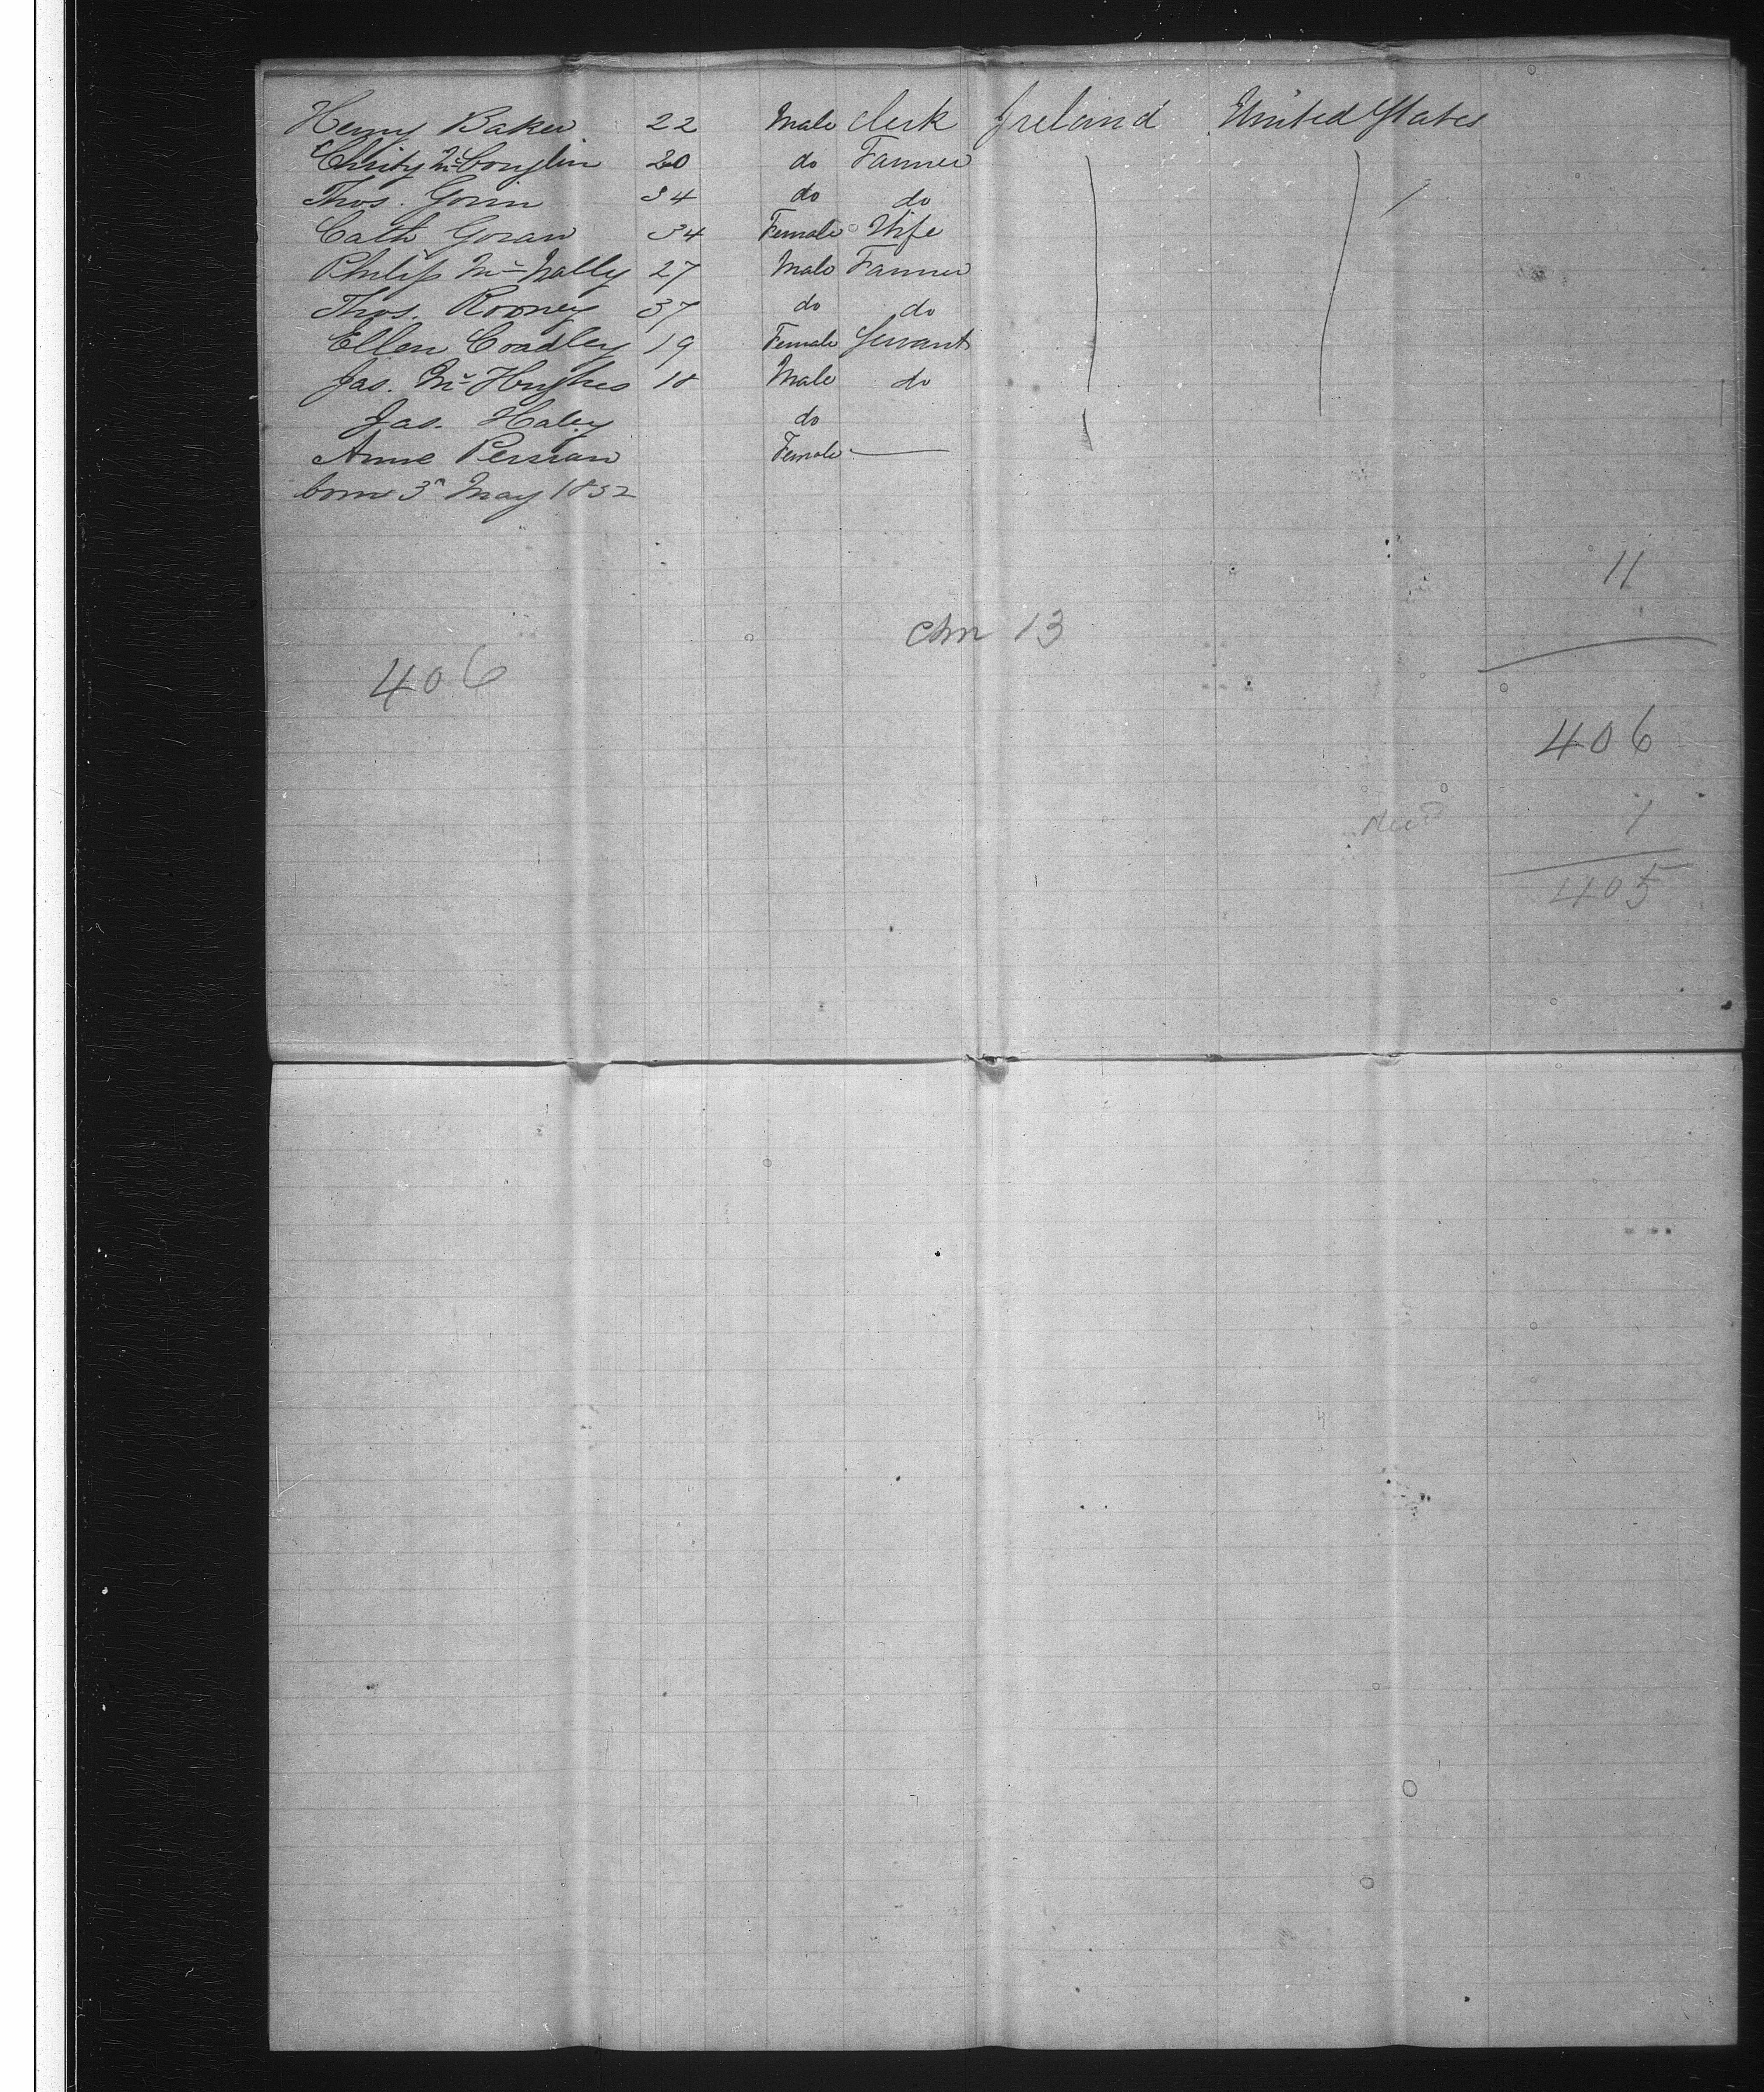 Henry Baker 22 Male Clerk Ireland United States
Christy McConglin 20 do Farmer
Thos. Gorin 34 do do
Cath. Goran 34 Female Wife
Philip McNally 27 Male Farmer
Thos. Rooney 37 do do
Ellen Coadley 19 Female Servant
Jas. McHughes 18 Male do
Jas. Haley do
Anne Persian Female
born 3d May 1852
11
chn 13
406
406
1
405